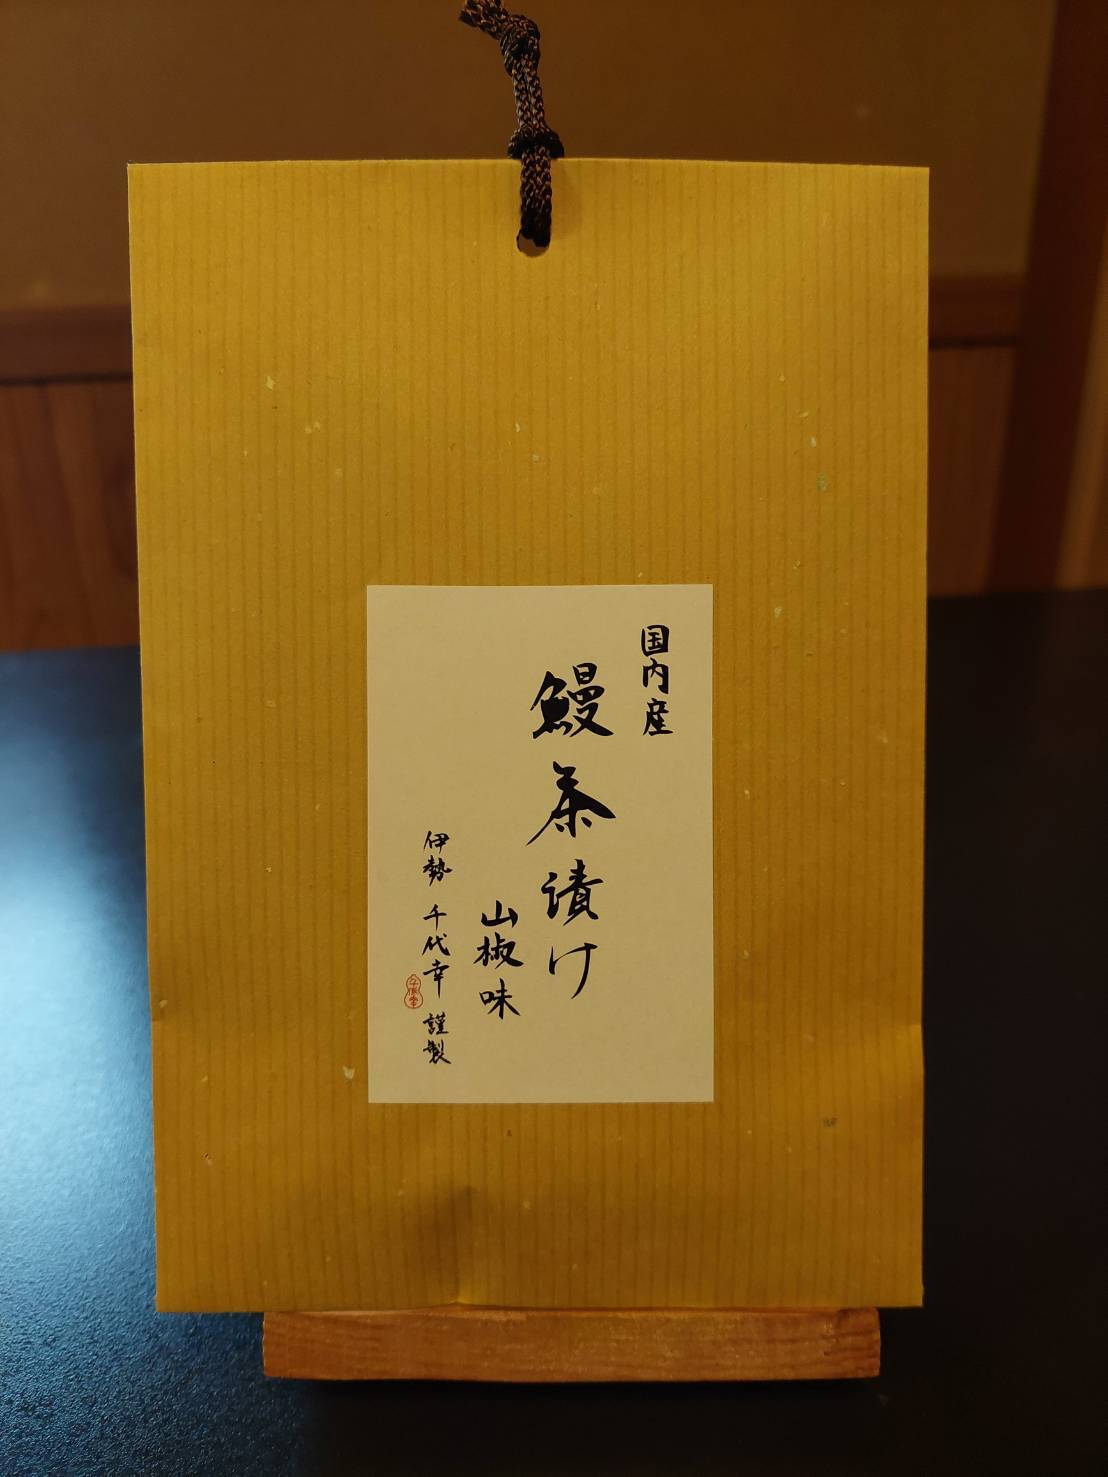 国内産
鰻茶漬け
山椒味
伊勢 千代幸 謹製
千代幸